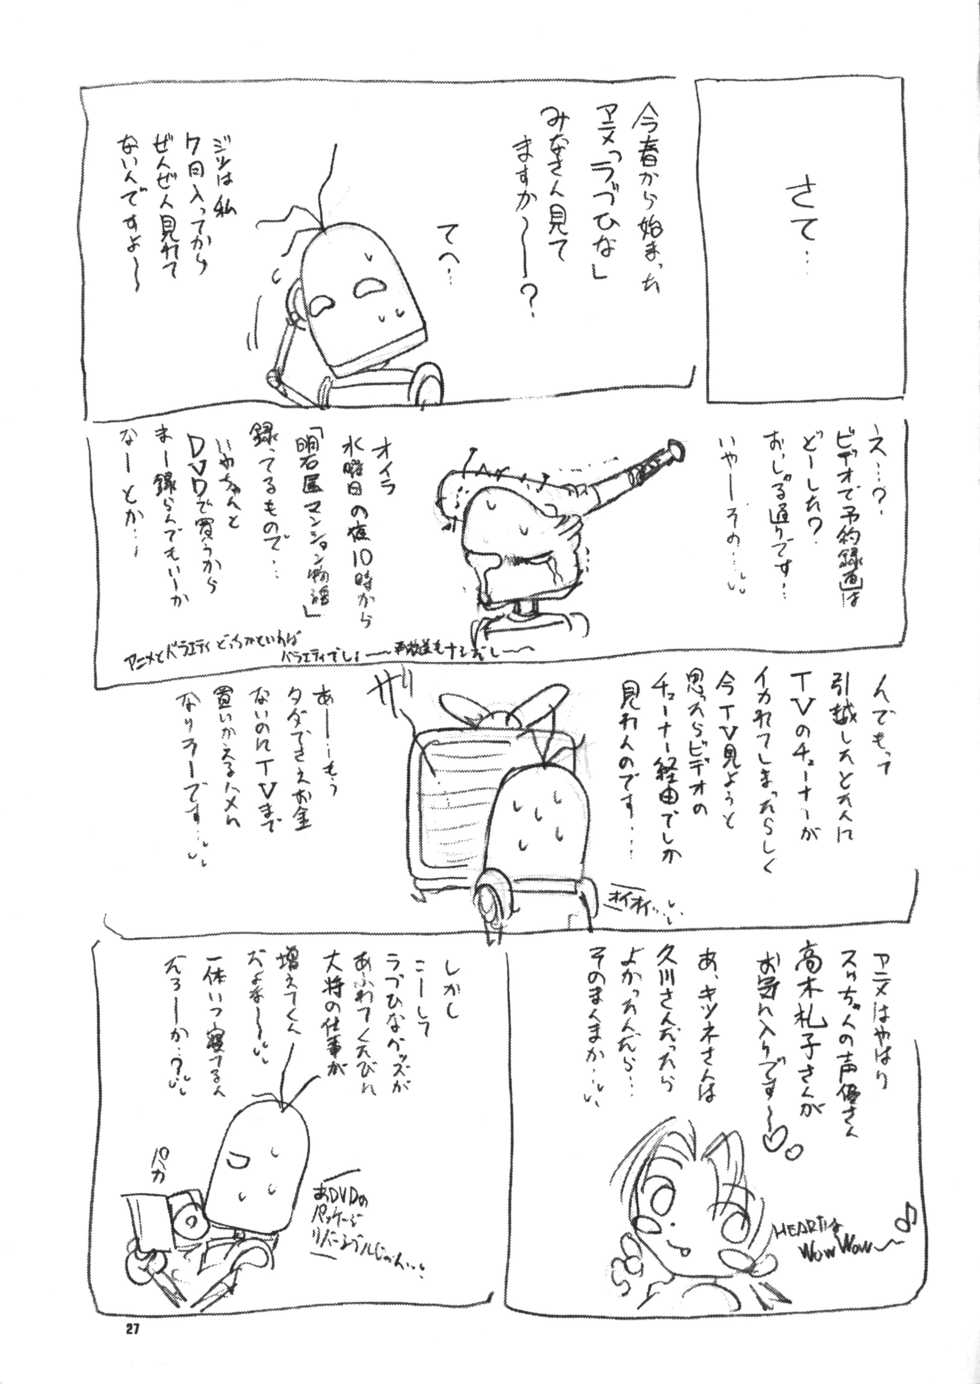 さて…
今春から始まった
アニメ「ラブひな」
みなさん見て
ますか〜〜?
てへ…
ジツは私
7日入ってから
ぜんぜん見れて
ないんですよ〜
えー…?
ビデオで予約録画は
どーした?
おっしゃる通りです…
いやーその…
オイラ
水曜日の夜10時から
「明石屋マンション物語」
録ってるもので…
いやちゃんと
DVDで買うから
まー録らんでもいーか
なーとか…!
アニメとバラエティどっちかといえば
バラエティでしょ〜〜再放送もナシだし〜〜
んでもって
引越したとたんに
TVのチューナーが
イカれてしまったらしく
今TV見ようと
思ったらビデオの
チューナー経由でしか
見れんのです…
ザリ
オイオイ…
あー…もう
タダでさえお金
ないのにTVまで
買いかえるハメに
なりそーです…
アニメはやはり
スゥちゃんの声優さん
高木礼子さんが
お気に入りです〜♡
あ、キツネさんは
久川さんだったら
よかったんだら…
そのまんまか…
HEARTは
WOW WOW〜♪
しかし
こーして
ラブひなグッズが
あふれてくるたびに
大将の仕事が
増えてくん
だよな〜
一体いつ寝てるん
だろーか…?
パカ
あDVDの
パッケージ
リバーシブルじゃん…
27